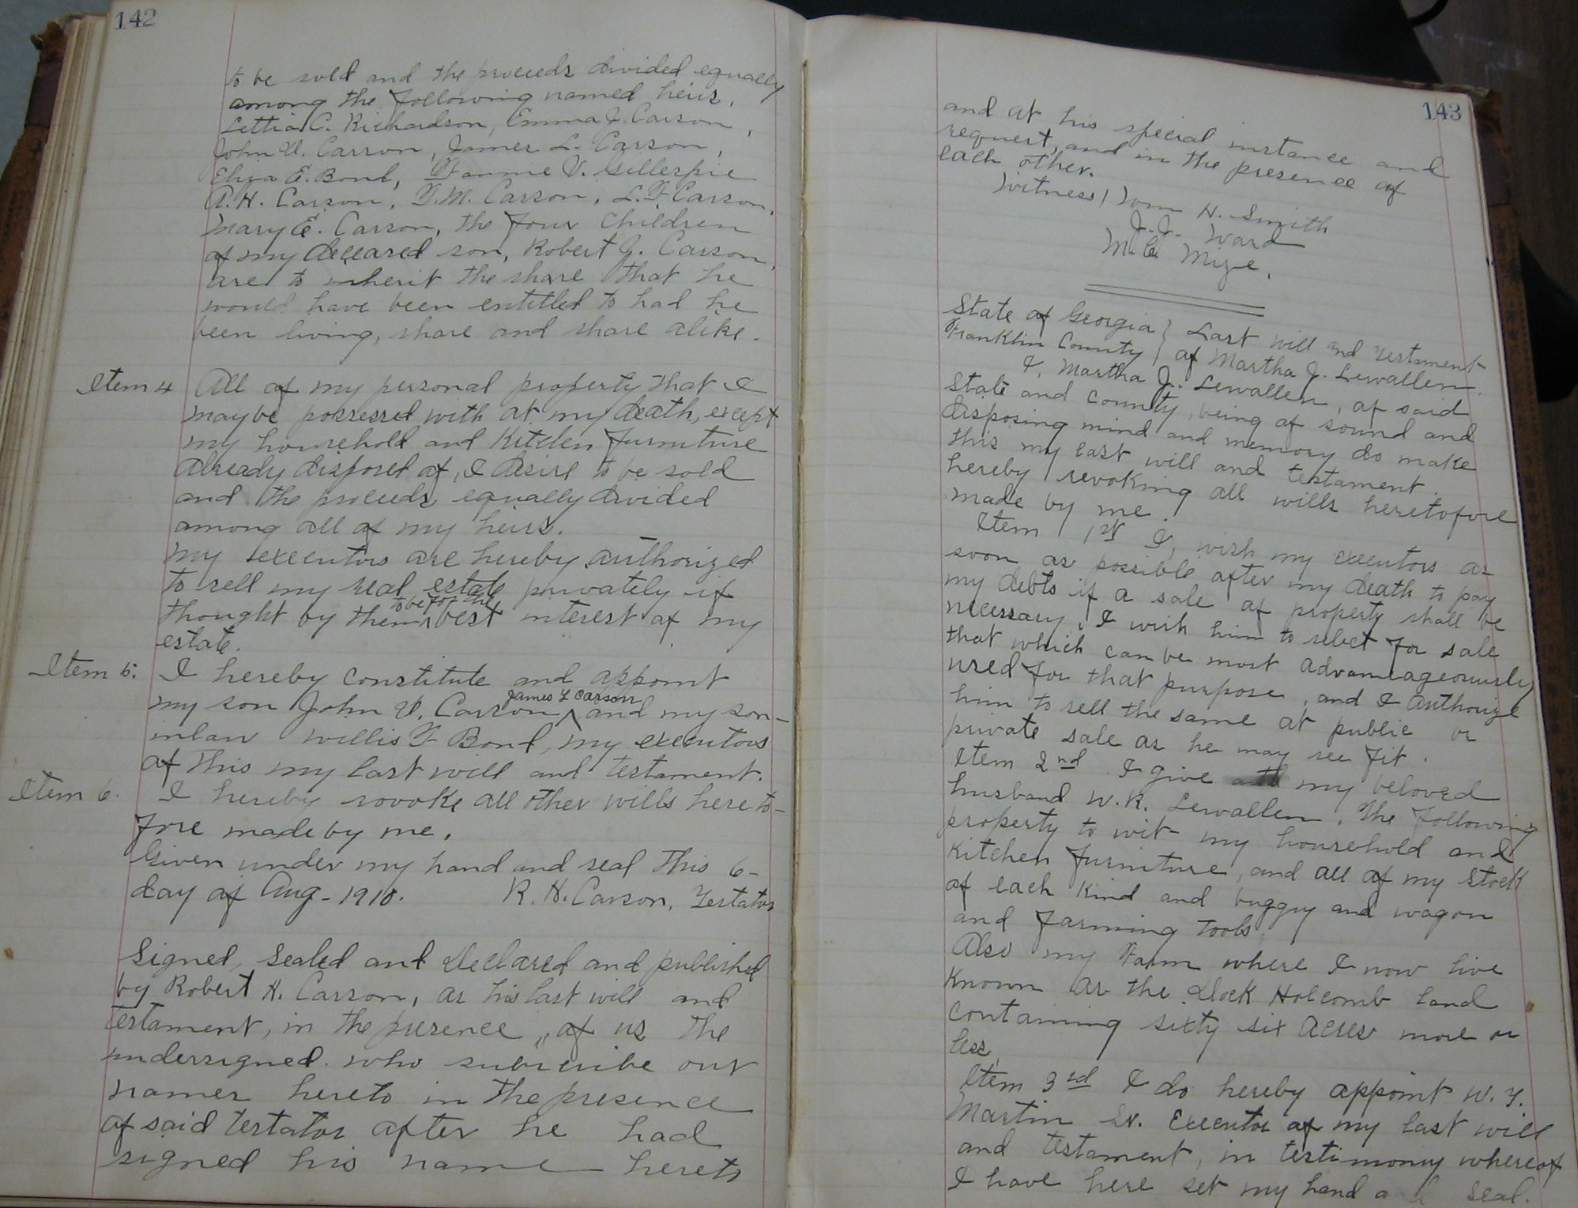 142
to be sold and the proceeds divided equally
among the following named heirs,
Lettia C. Richardson, Emma J. Carson,
John V. Carson, James L. Carson,
Eliza E. Bond, Fannie V. Gillespie
A. H. Carson, T. M. Carson, L. F. Carson,
Mary E. Carson, the four children
of my deceased son, Robert J. Carson,
are to inherit the share that he
would have been entitled to had he
been living, share and share alike.
Item 4 All of my personal property that I
maybe possessed with at my death, except
my household and Kitchen furniture
already disposed of, I desire to be sold
and the proceeds equally divided
among all of my heirs.
My executors are hereby authorized
to sell my real estate privately if
thought by them to be for the best interest of my
estate.
Item 5. I hereby constitute and appoint
my son John V. Carson James L Carson and my son-
inlaw Willis F Bond, my executors
of this my last will and testament.
Item 6. I hereby revoke all other wills hereto-
fore made by me.
Given under my hand and seal this 6-
day of Aug - 1910. R. H. Carson, Testator
Signed, sealed and declared and published
by Robert H. Carson, as his last will and
testament, in the presence, of us the
undersigned who subscribe our
names hereto in the presence
of said testator after he had
signed his name hereto
143
and at his special instance and
request, and in the presence of
each other.
Witness) Tom H. Smith
J. J. Ward
M. C. Mize.
State of Georgia } Last will and testament
Franklin County } of Martha J. Lewallen
I, Martha J. Lewallen, of said
State and County, being of sound and
disposing mind and memory do make
this my last will and testament
hereby revoking all wills heretofore
made by me.
Item 1st I, wish my executors as
soon as possible after my death to pay
my debts if a sale of property shall be
necessary, I wish him to select for sale
that which can be most advantageously
used for that purpose, and I authorize
him to sell the same at public or
private sale as he may see fit.
Item 2nd I give my beloved
husband W. R. Lewallen, the following
property to wit my household and
Kitchen furniture, and all of my stock
of each kind and buggy and wagon
and farming tools
Also my Farm where I now live
known as the Dock Holcomb land
containing sixty six acres more or
less,
Item 3rd I do hereby appoint W. Y.
Martin Sr. Executor of my last will
and testament, in testimony whereof
I have here set my hand a seal.